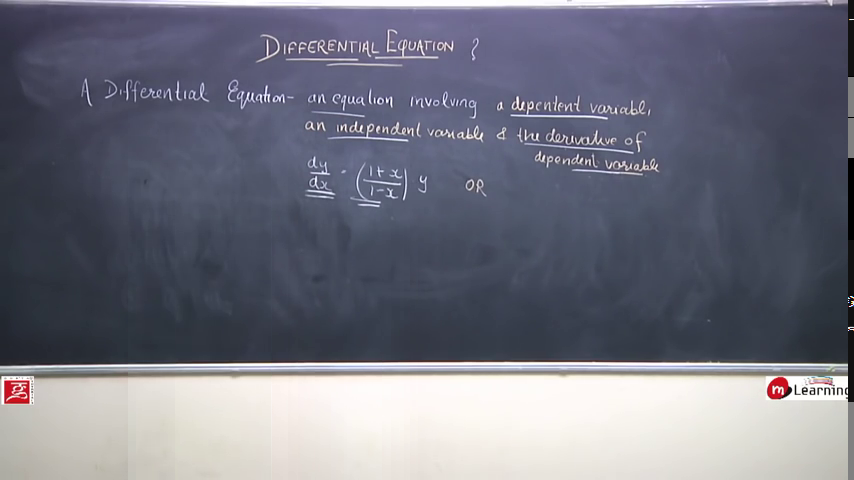 DIFFERENTIAL EQUATION ?
A Differential Equation- an equation involving a depentent variable,
an independent variable & the derivative of
dependent variable
dy/dx = ((1+x)/(1-x)) y OR
m Learning